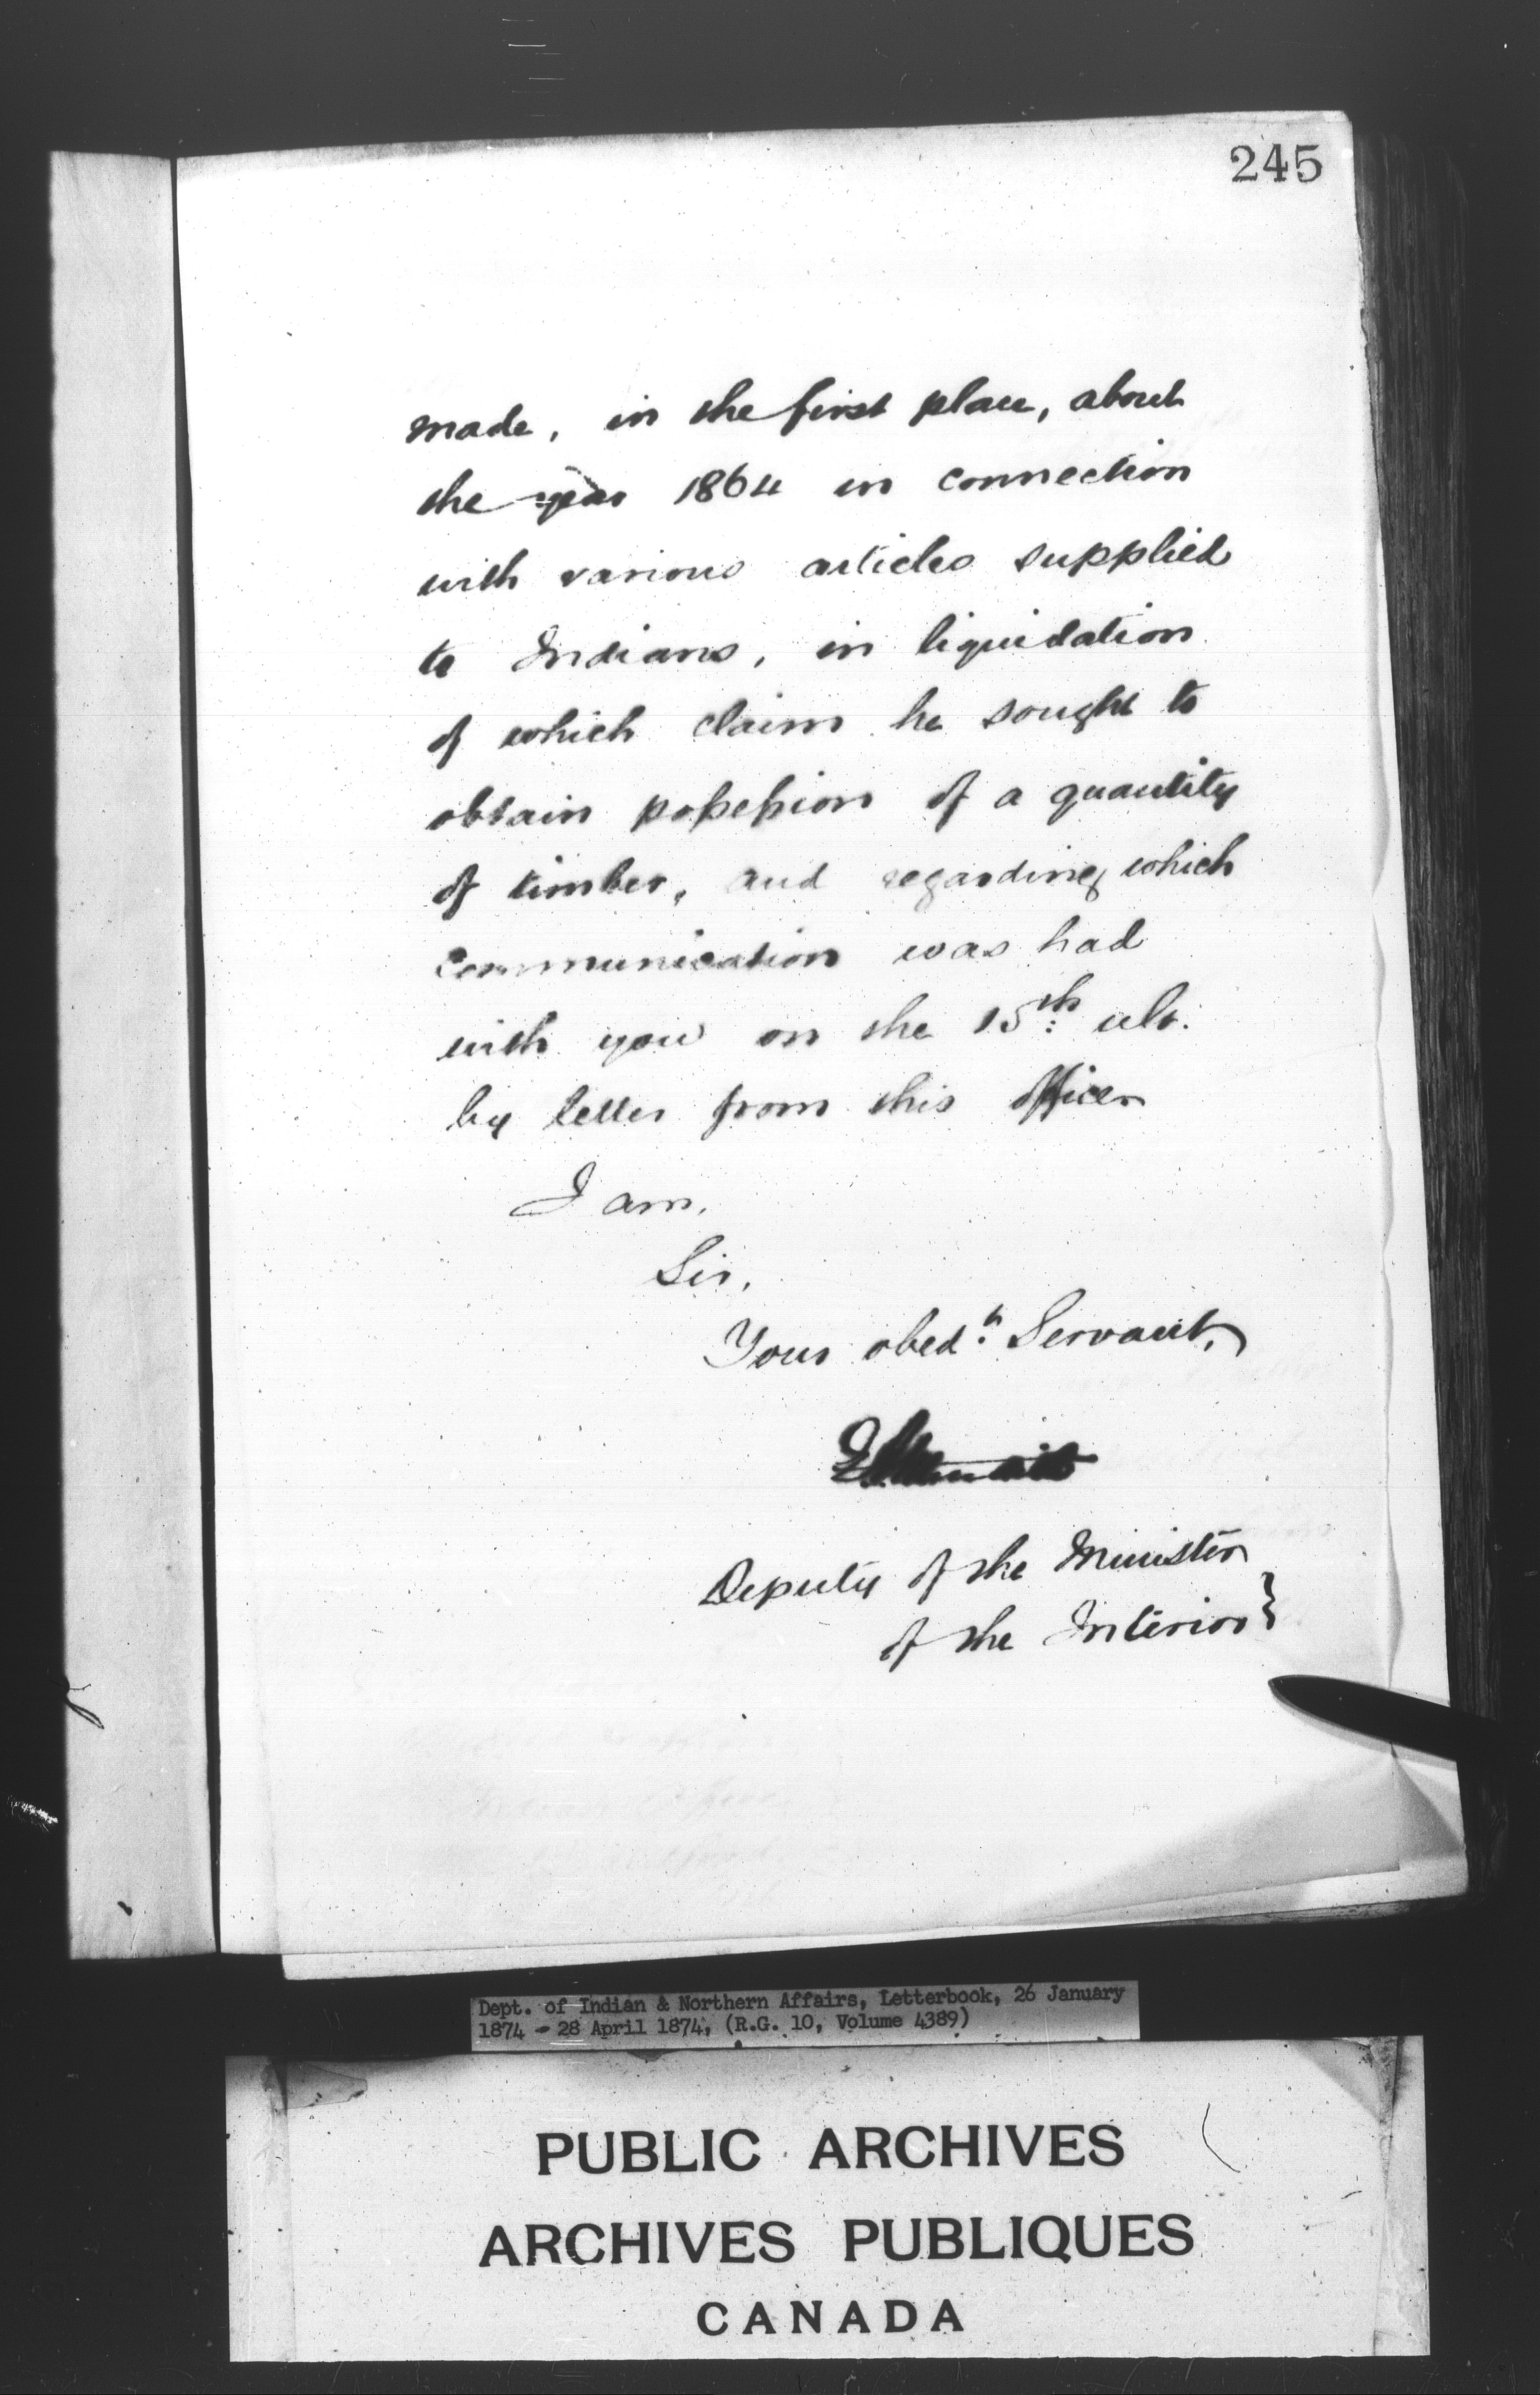 245
made, in the first place, about
the year 1864 in connection
with various articles supplied
to Indians, in liquidation
of which claim he sought to
obtain possession of a quantity
of timber, and regarding which
communication was had
with you on the 15th ult.
by letter from this office
I am,
Sir,
Your obedt Servant,
Deputy of the Minister
of the Interior }
Dept. of Indian & Northern Affairs, Letterbook, 26 January
1874 - 28 April 1874, (R.G. 10, Volume 4389)
PUBLIC ARCHIVES
ARCHIVES PUBLIQUES
CANADA